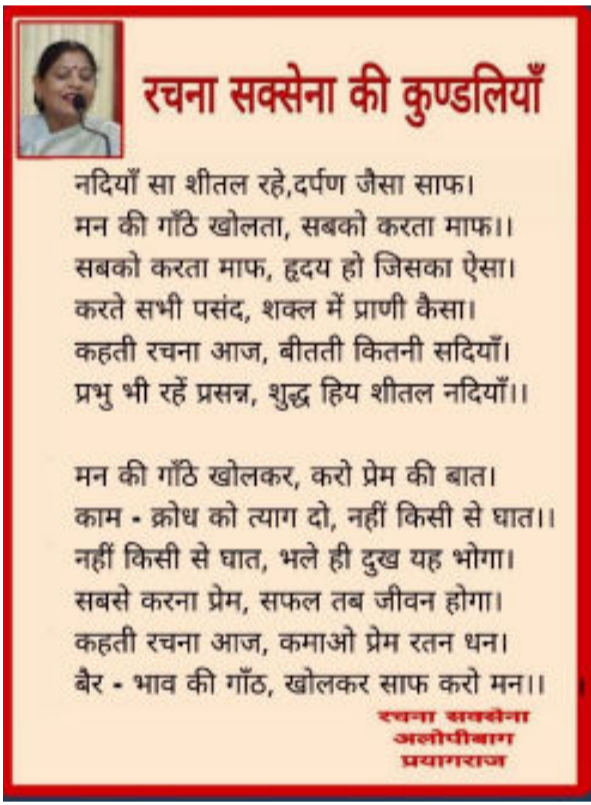 रचना सक्सेना की कुण्डलियाँ
नदियाँ सा शीतल रहे,दर्पण जैसा साफ।
मन की गाँठे खोलता, सबको करता माफ।।
सबको करता माफ, हृदय हो जिसका ऐसा।
करते सभी पसंद, शक्ल में प्राणी कैसा।
कहती रचना आज, बीतती कितनी सदियाँ।
प्रभु भी रहें प्रसन्न, शुद्ध हिय शीतल नदियाँ।।
मन की गाँठे खोलकर, करो प्रेम की बात।
काम - क्रोध को त्याग दो, नहीं किसी से घात।।
नहीं किसी से घात, भले ही दुख यह भोगा।
सबसे करना प्रेम, सफल तब जीवन होगा।
कहती रचना आज, कमाओ प्रेम रतन धन।
बैर - भाव की गाँठ, खोलकर साफ करो मन।।
रचना सक्सेना
अलोपीबाग
प्रयागराज